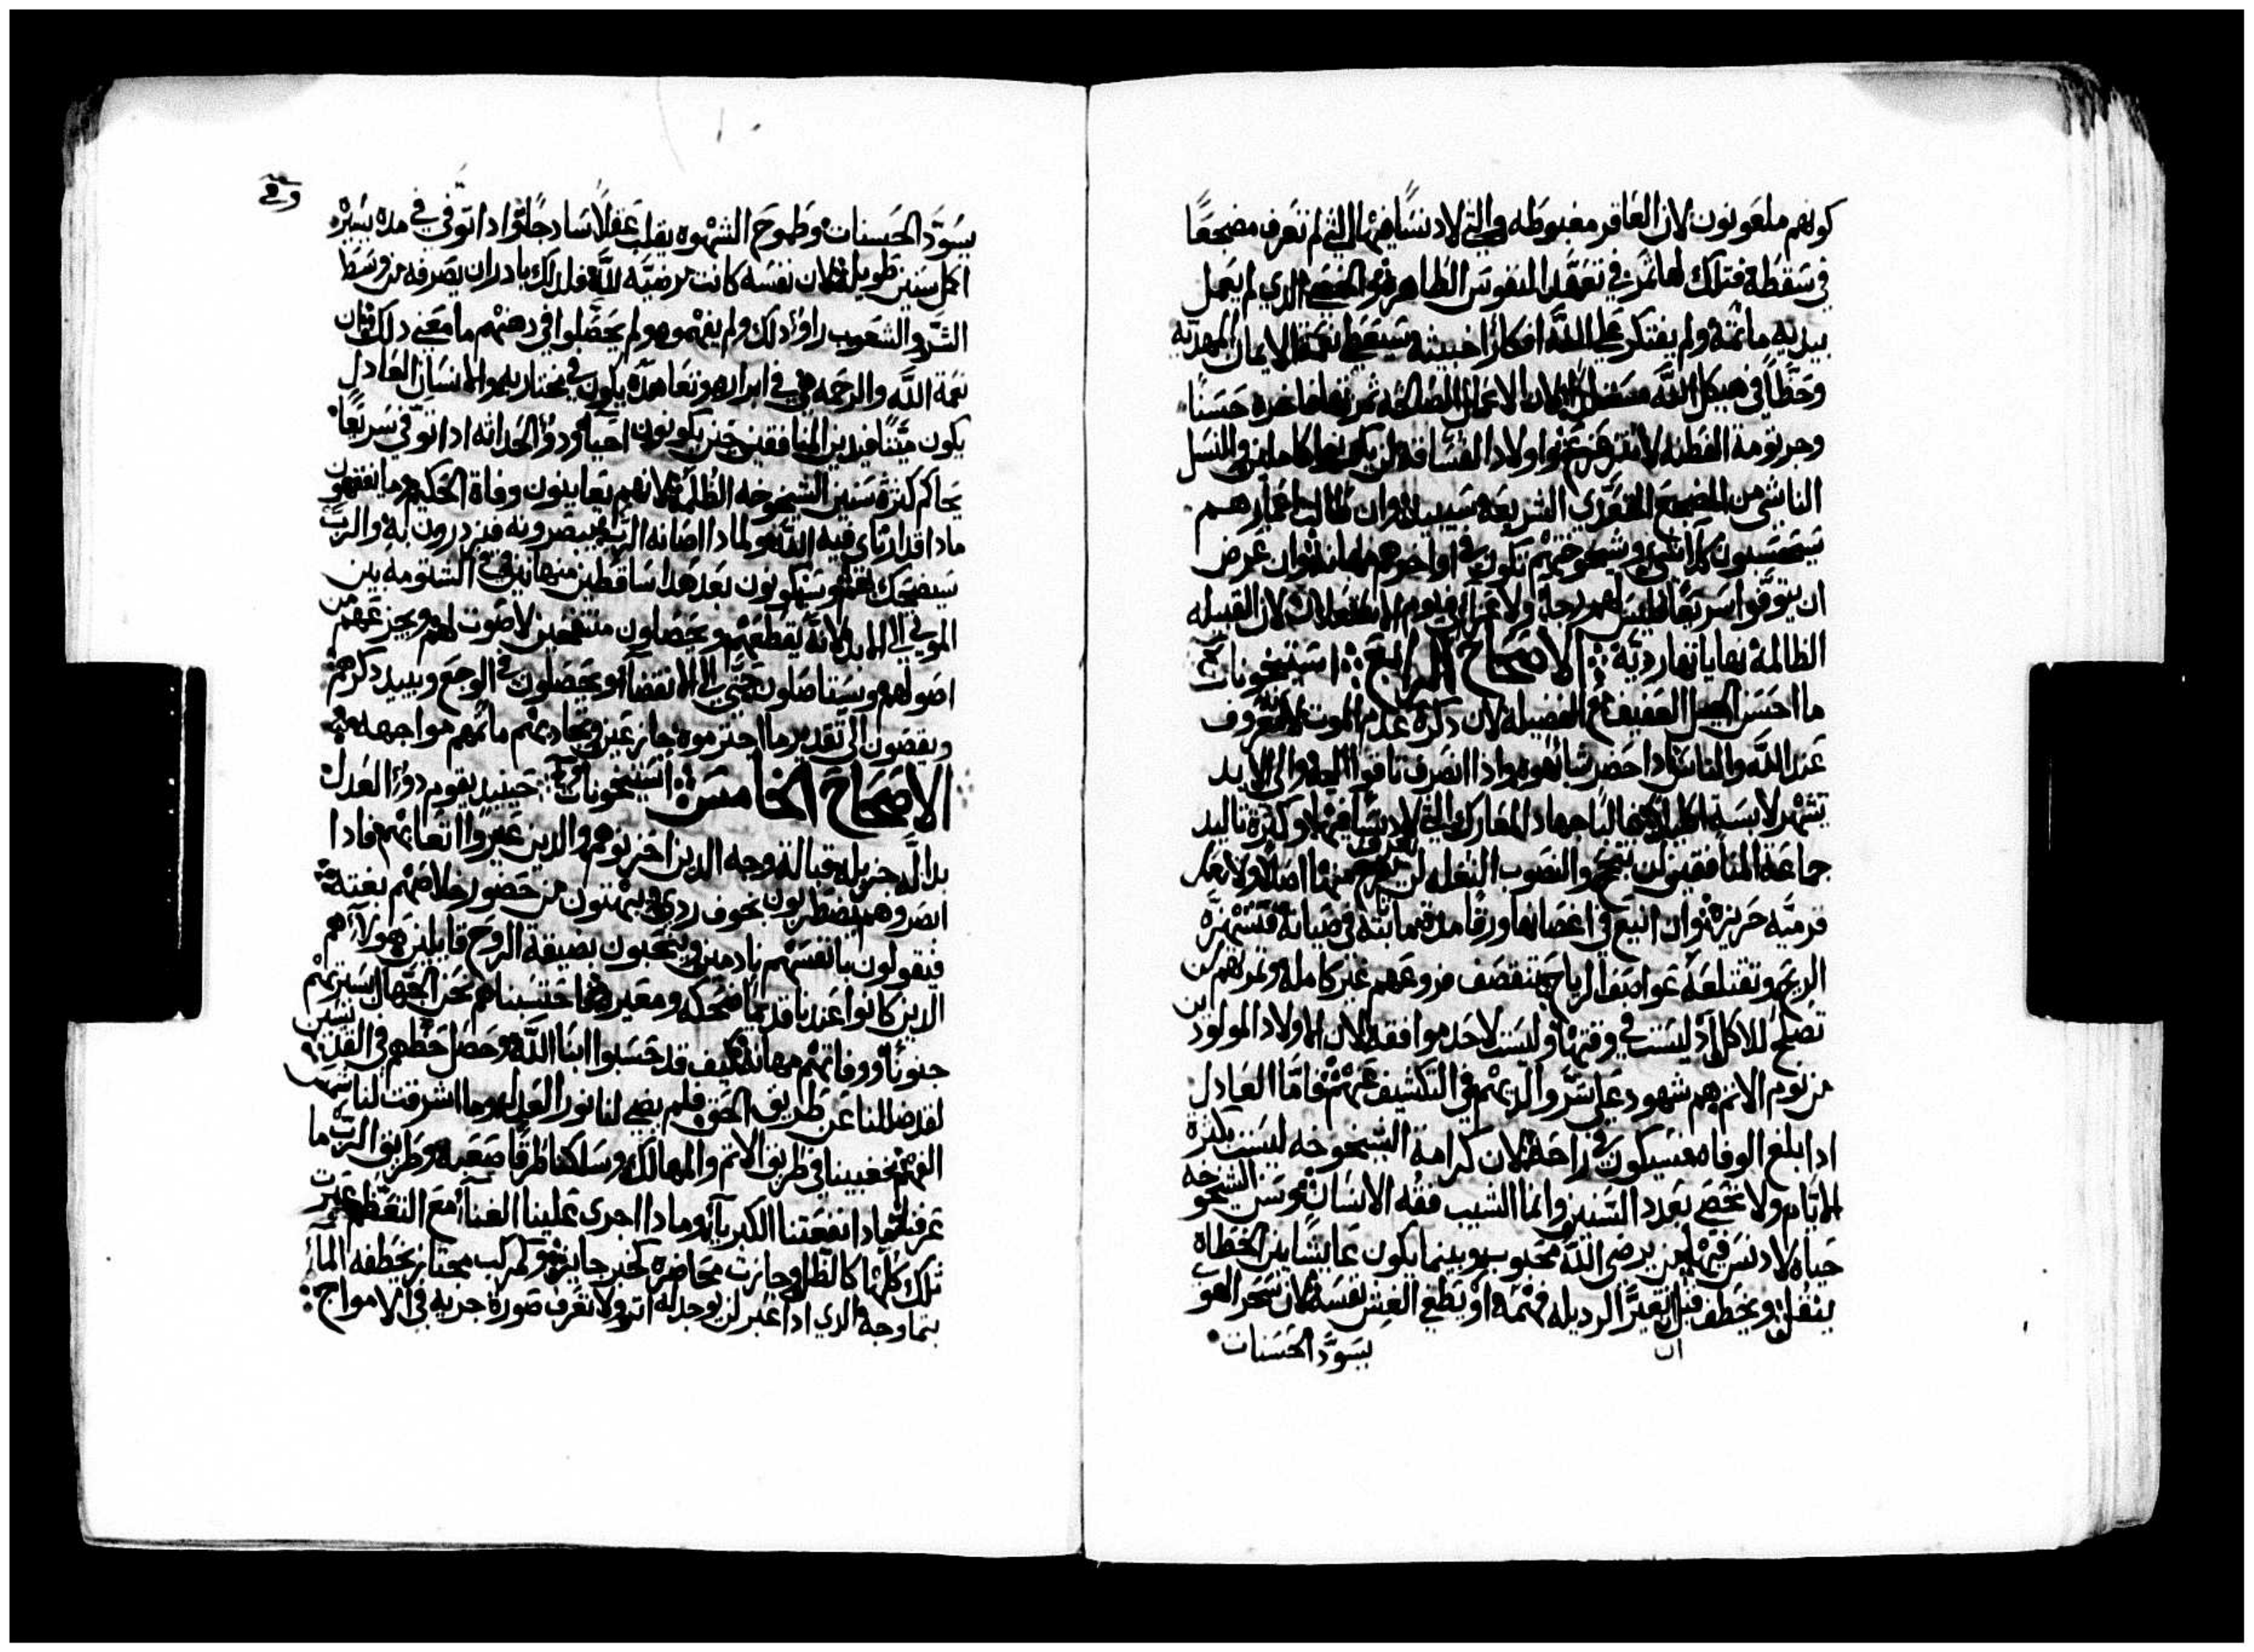 كونهم ملعونون لان العاقر مغبوطه والتي لا دنسا فيها التي لم تعرف مضجعا
في سقطة فتلك لها ثمر في تعهد النفوس الطاهرة والخصي الدي لم يعمل
بيديه ماثمة ولم يفتكر على الله افكارا خبيثه سيعطى نعمة الايمان المهديه
وحظا في هيكل الله مستقبلا لان الاعمال الصالحه ثمرتها فاخره حسنا
وجرثومة الفطنه لا تتزعزع واولاد الفساق لن يكونوا كاملين والنسل
الناشي من المضجع المتعدي الشريعه سيبيد وان طالت اعمارهم
سيحسبون كلا شي وشيخوختهم تكون في اواخرهم مهانه وان عرض
ان يتوفوا سريعا فليس لهم رجا ولا عزا في يوم لان القبيله
الظالمة نهاياتها رديه الاصحاح الرابع استيخونات
ما احسن الجيل العفيف مع الفضيله لان دكره عدم الموت لانه معروف
عند الله والناس ادا حضر شابهوه وادا انصرف تاقوا اليه والى الابد
تشهر لابسة اكليل غالبا جهاد المعارك التي لا دنسا فيها وكثرة تاليد
جماعة المنافقين لن ينجح والنصوب النغله لن تعرق اصلا ولا تعد
فرميه حريزه وان اينع في اغصانها ورقا مدة فما نبته في صيانة فتستهزه
الريح وتقتلعه عواصف الرياح وتنقصف فروعهم غير كامله وثمرتهم لن
تصلح للاكل اد ليست في وقتها وليست لاحد موافقه لان الاولاد المولودين
من نوم الاثم هم شهود على شر والديهم في التكشيف عنهم فاما العادل
ادا بلغ الوفاه فسيكون في راحة لان كرامة الشيخوخه ليست بكثرة
الايام ولا تحصى بعدد السنين وانما الشيب فقه الانسان وسن الشيخوخه
حياه لا دنس فيها من يرضى الله محبوب وبينما يكون عايشا بين الخطاه
ينقل ويخطف قبل ان تغير الرديله فهمه او يطغي الغش نفسه لان سحر الغوي
يسود الحسنات
يسود الحسنات وطموح الشهوه يقلب عقلا سادجا وادا توفي في مده يسيره
اكمل سنين طويله لان نفسه كانت مرضيه لله فلدلك بادر ان يصرفه من وسط
الشر والشعوب راوا دلك ولم يفهموه ولم يحصلوا في دهنهم ما معنى دلك فان
نعمة الله والرحمه هي في ابراره وتعاهده يكون في مختاريه والانسان العادل
يكون ميتا فيدين المنافقين حين يكونون احيا ودو الحداثه ادا توفي سريعا
يحاكم كثرة سنين الشيخوخه الظلمه لانهم يعاينون وفاة الحكيم وما يفقهون
مادا قد ارتاى فيه الله ولمادا صانه الرب يبصرونه فيزدرون به والرب
سيضحك بهم وسيكونون بعد هدا ساقطين مهانين وفي الشتومه بين
الموتى الى الابد لانه يقطعهم ويحصلون منتفخين لا صوت لهم ويزعزعهم من
اصولهم ويستاصلون حتى الى الانقضا ويحصلون في الوجع ويبيد دكرهم
ويفضون الى تقدير ما اجترموه جازعين وتحاديهم ماثمهم مواجهه
الاصحاح الخامس استيخونات حينيد يقوم دو العدل
بدالة جزيله قبالة وجه الدين احزنوهم والدين غيروا اتعابهم فادا
ابصروهم يضطربون بخوف ردي ويبهتون من حضور خلاصهم بغته
فيقولون بانفسهم نادمين وينتحبون بضيقة الروح قايلين هولاهم
الدين كانوا عندنا قديما ضحكه ومعيره فاحتسبناهم نحن الجهال سيرتهم
جنونا ووفاتهم مهانه كيف قد حسبوا ابنا الله وحصل حظهم في القديسين
لقد ضللنا عن طريق الحق فلم يضي لنا نور العدل وما اشرقت لنا شمس
الفهم فخبنا في طريق الاثم والمهالك وسلكنا طرقا صعبه وطريق الرب ما
عرفناه فمادا نفعتنا الكبريا ومادا اجرى علينا الغنا مع التعظم عبرت
تلك كلها كالظل وجازت محاضرة كخبر جايز وكمركب مجتاز يخطفه الما
بتماوجه الدي ادا عبر لن يوجد له اثر ولا تعرف صورة جريه في الامواج